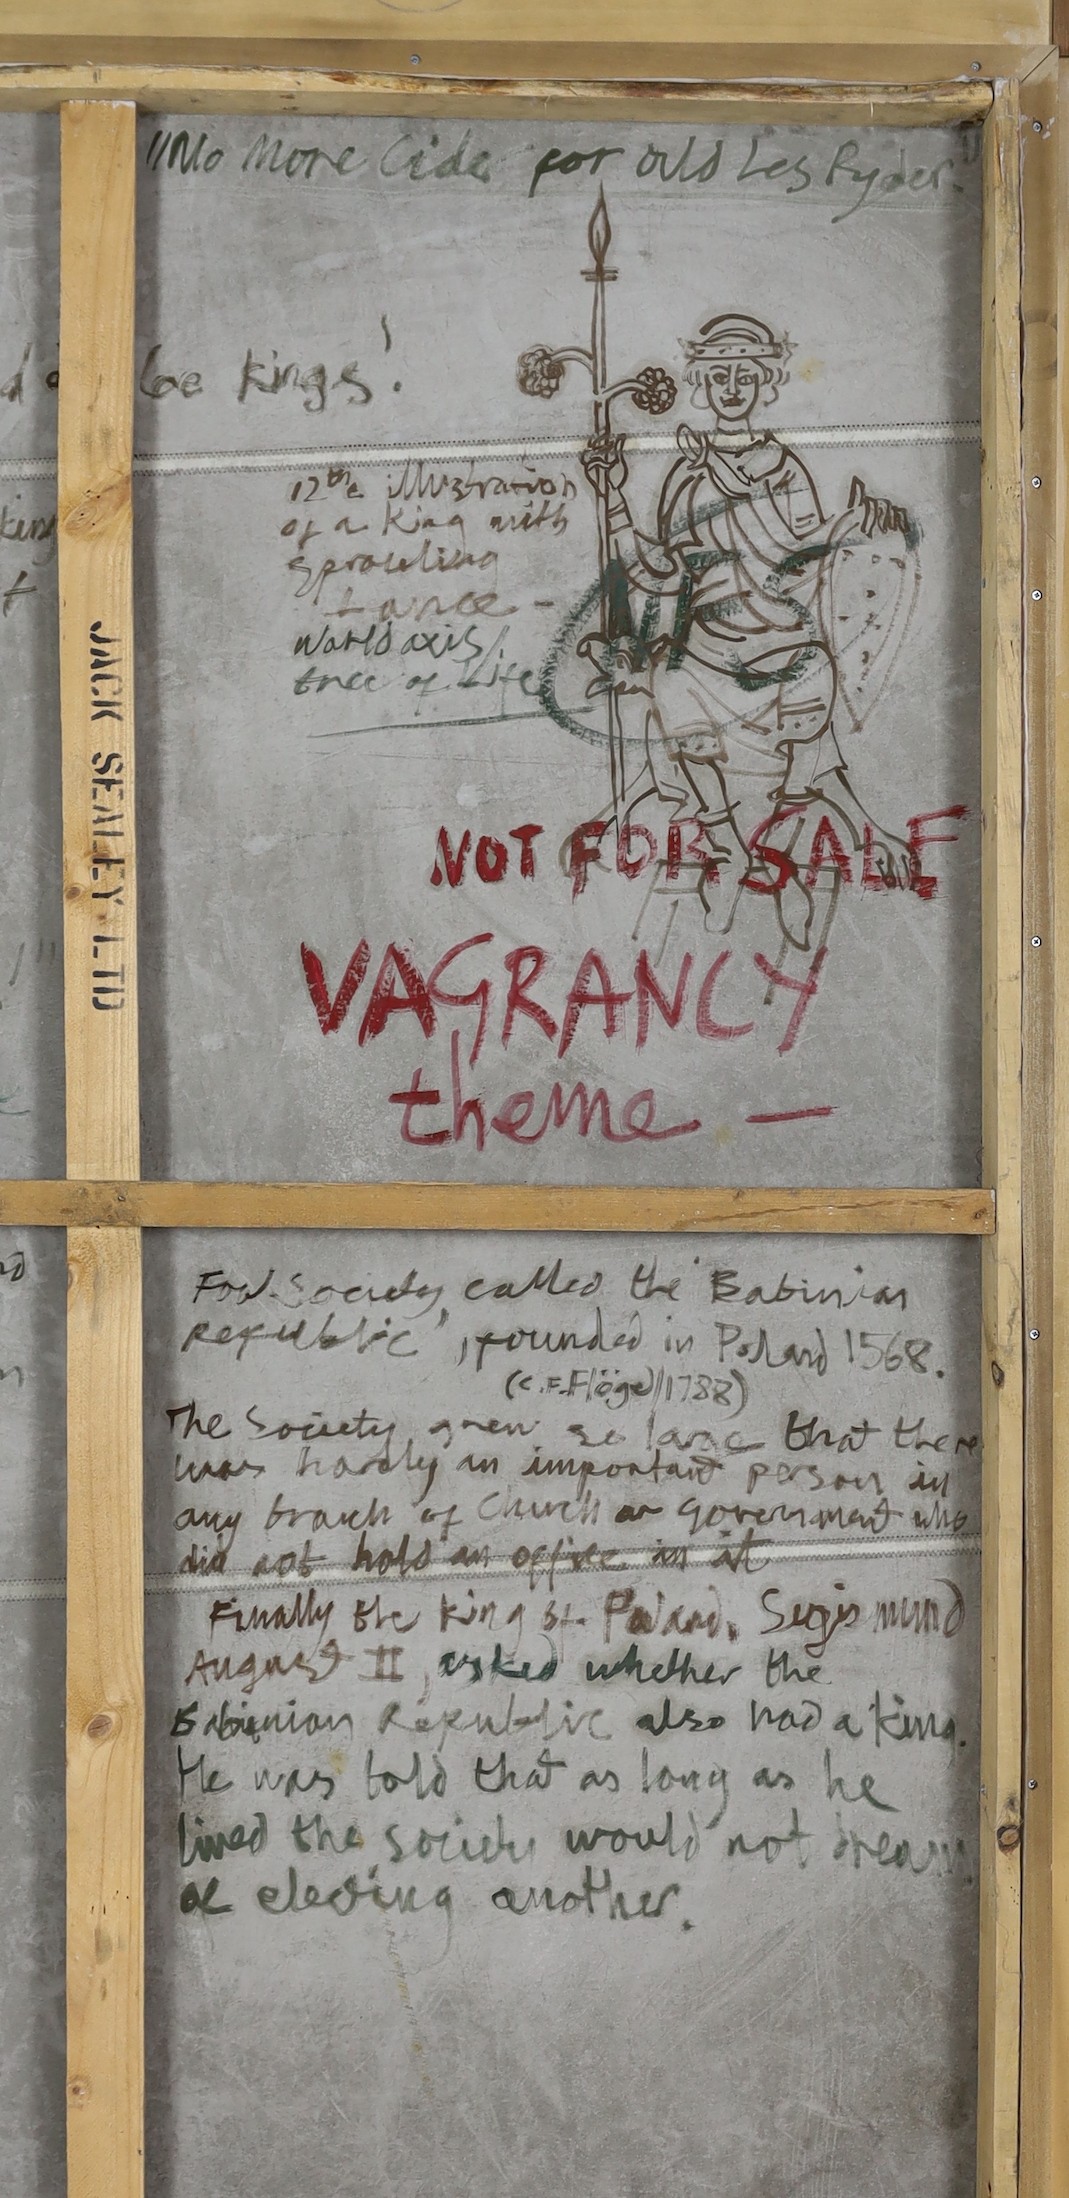 "No More Cider for Old Les Ryder."
be kings!
12th c illustration
of a King with
sprouting
Lance -
World axis/
tree of Life
JACK SEALEY LTD
NOT FOR SALE
VAGRANCY
theme —
Fool Society called the 'Babinian
Republic', founded in Poland 1568.
(C.F. Flögel/1788)
The Society grew so large that there
was hardly an important person in
any branch of Church or Government who
did not hold an office in it
Finally the King of Poland, Sigismund
August II, asked whether the
Babinian Republic also had a king.
He was told that as long as he
lived the society would not dream
of electing another.